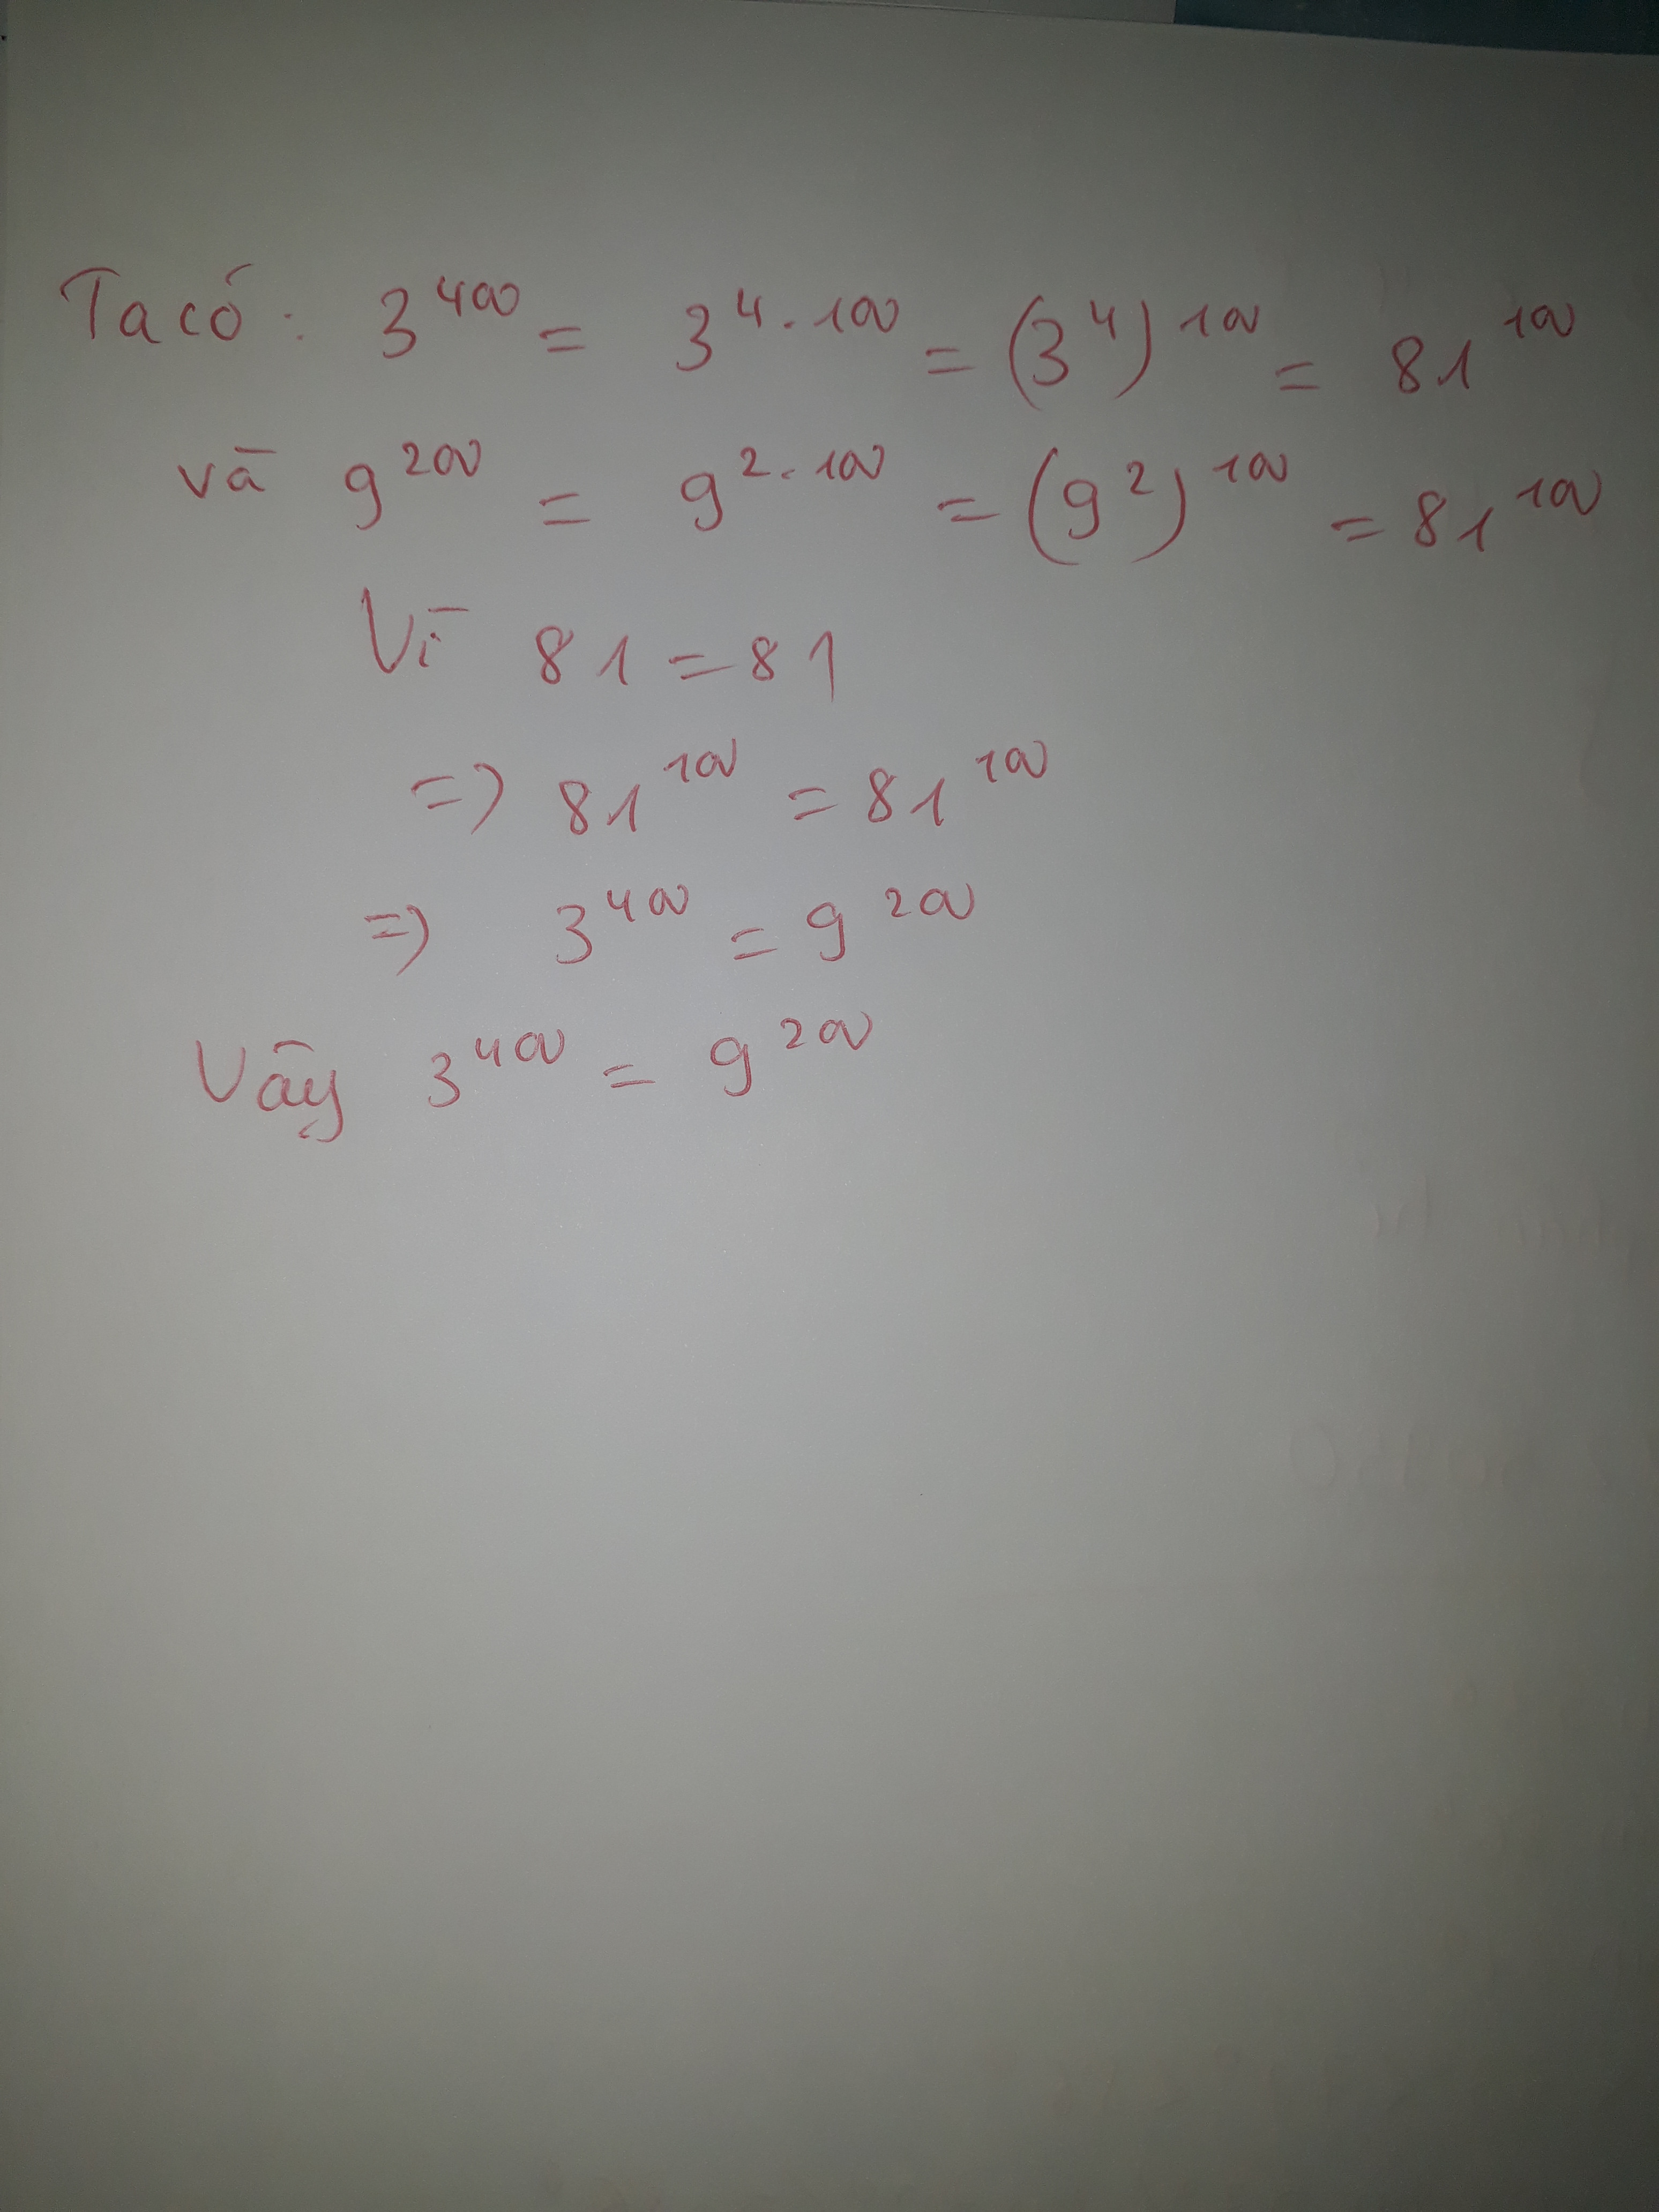 Ta có: 3^400 = 3^4.100 = (3^4)^100 = 81^100
và 9^200 = 9^2.100 = (9^2)^100 = 81^100
Vì 81 = 81
=> 81^100 = 81^100
=> 3^400 = 9^200
Vậy 3^400 = 9^200